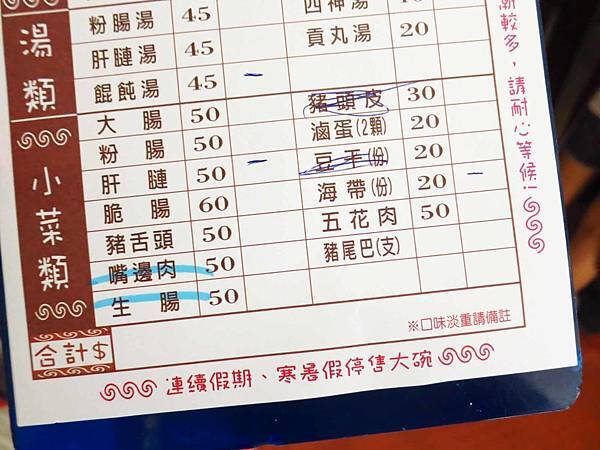 湯類
粉腸湯 45
肝膢湯 45 貢丸湯 20
餛飩湯 45 –
小菜類
大腸 50 豬頭皮 30
粉腸 50 滷蛋(2顆) 20
肝膢 50 – 豆干(份) 20
脆腸 60 海帶(份) 20 –
豬舌頭 50 五花肉 50
嘴邊肉 50 豬尾巴(支)
生腸 50
合計$
※口味淡重請備註
連續假期、寒暑假停售大碗
較多,請耐心等候!